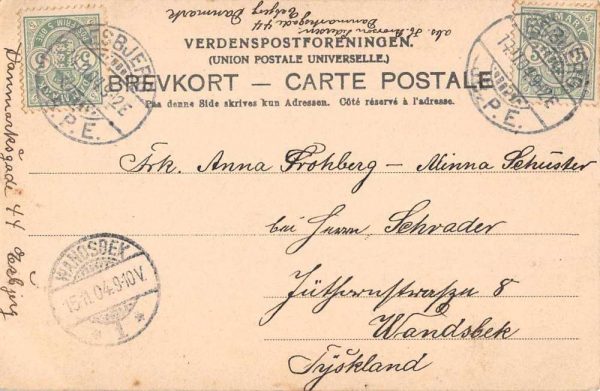 VERDENSPOSTFORENINGEN.
(UNION POSTALE UNIVERSELLE.)
BREVKORT — CARTE POSTALE
Paa denne Side skrives kun Adressen. Côté réservé à l'adresse.
Frk. Anna Frohberg — Minna Schuster
bei Herrn Schrader
Jüthornstraße 8
Wandsbek
Tyskland
Danmarksgade 44 Esbjerg
abs.
Danmarksgade 44
Esbjerg Danmark
ESBJERG
P.E.
DANMARK
5
ESBJERG
P.E.
WANDSBEK
15.11.04.9-10V.
* 1 *